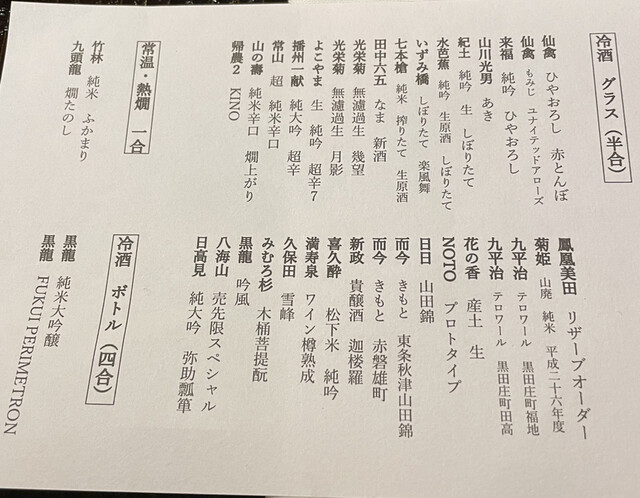 冷酒 グラス（半合）
仙禽 ひやおろし 赤とんぼ
仙禽 もみじ ユナイテッドアローズ
来福 純吟 ひやおろし
山川光男 あき
紀土 純吟 生 しぼりたて
水芭蕉 純吟 生原酒 しぼりたて
いずみ橋 しぼりたて 楽風舞
七本槍 純米 搾りたて 生原酒
田中六五 なま 新酒
光栄菊 無濾過生 幾望
光栄菊 無濾過生 月影
よこやま 生 純吟 超辛7
播州一献 純大吟 超辛
常山 超 純米辛口
山の壽 純米辛口 燗上がり
帰農2 KINO
常温・熱燗 一合
竹林 純米 ふかまり
九頭龍 燗たのし
鳳凰美田 リザーブオーダー
菊姫 山廃 純米 平成二十六年度
九平治 テロワール 黒田庄町福地
九平治 テロワール 黒田庄町田高
花の香 産土 生
NOTO プロトタイプ
日日 山田錦
而今 きもと 東条秋津山田錦
而今 きもと 赤磐雄町
新政 貴醸酒 迦楼羅
喜久酔 松下米 純吟
満寿泉 ワイン樽熟成
久保田 雪峰
みむろ杉 木桶菩提酛
黒龍 吟風
八海山 売先限スペシャル
日高見 純大吟 弥助瓢箪
冷酒 ボトル（四合）
黒龍 純米大吟醸
黒龍 FUKUI PERIMETRON